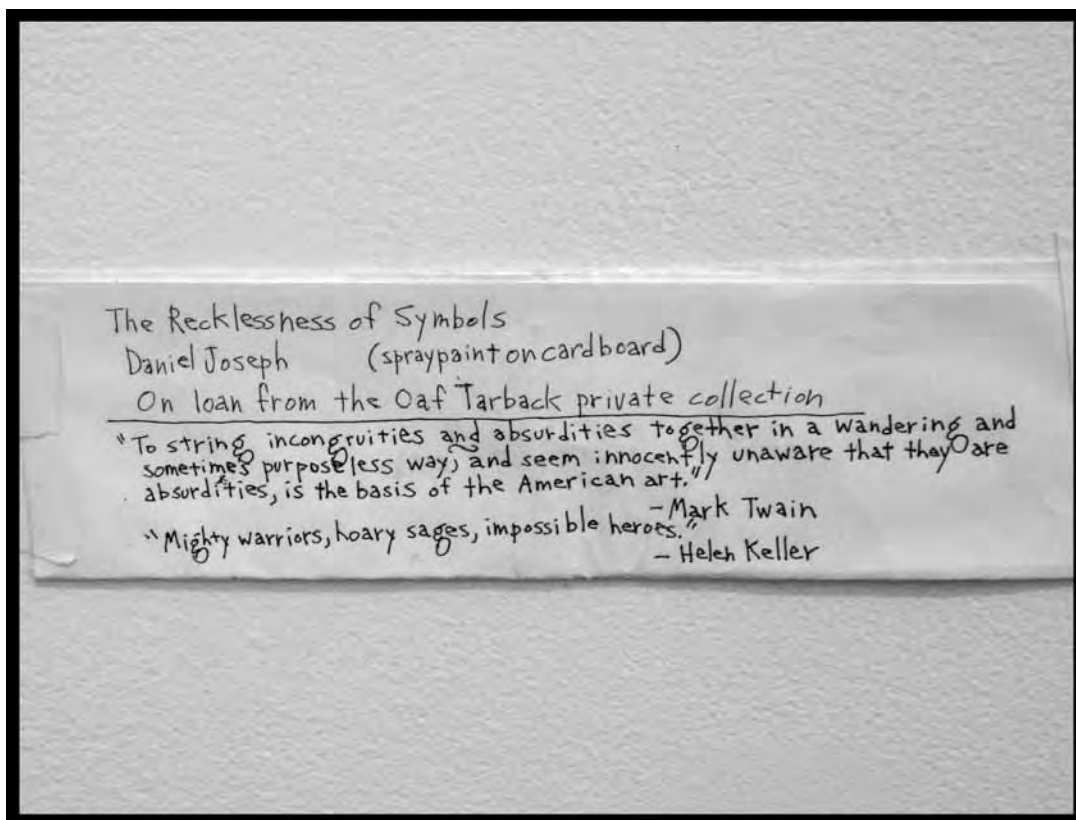 The Recklessness of Symbols
Daniel Joseph (spraypaint on cardboard)
On loan from the Oaf Tarback private collection
"To string incongruities and absurdities together in a wandering and
sometimes purposeless way, and seem innocently unaware that they are
absurdities, is the basis of the American art."
-Mark Twain
"Mighty warriors, hoary sages, impossible heroes."
- Helen Keller